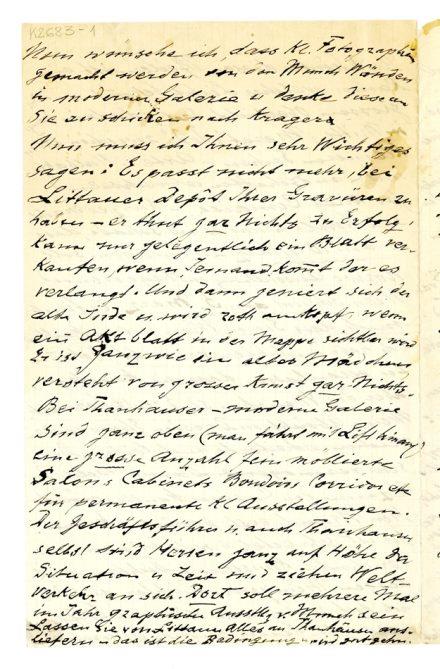 K2683-1
Nun wünsche ich, dass Kl. Fotographien
gemacht werden von den Munch Wänden
in moderner Galerie u denke diese an
Sie zu schicken nach Kragerø
Nun muss ich Ihnen sehr Wichtiges
sagen: Es passt nicht mehr, bei
Littauer Depôt Ihrer Gravüren zu
haben – er thut gar Nichts zu Erfolg,
kann nur gelegentlich ein Blatt ver-
kaufen, wenn Jemand komt der es
verlangt. Und dann geniert sich der
alte Jude u. wird roth am Kopf, wenn
ein Akt blatt in der Mappe sichtbar wird
Er ist ganz wie ein altes Mädchen
versteht von grosser Kunst gar Nichts.
Bei Thanhauser – moderne Galerie
sind ganz oben (man fährt mit Lift hinauf)
eine grosse Anzahl fein möllierte
Salons Cabinets Boudoirs Corridor etc
für permanente Kl Ausstellungen.
Der Geschäftsführer u. auch Thanhauser
selbst sind Herren ganz auf Höhe der
Situation u Zeit und ziehen Welt-
verkehr an sich. Dort soll mehrere Mal
im Jahr graphische Ausstllg v. Munch sein
Lassen Sie von Littauer Alles an Thanhauser aus-
liefern – das ist die Bedingung und